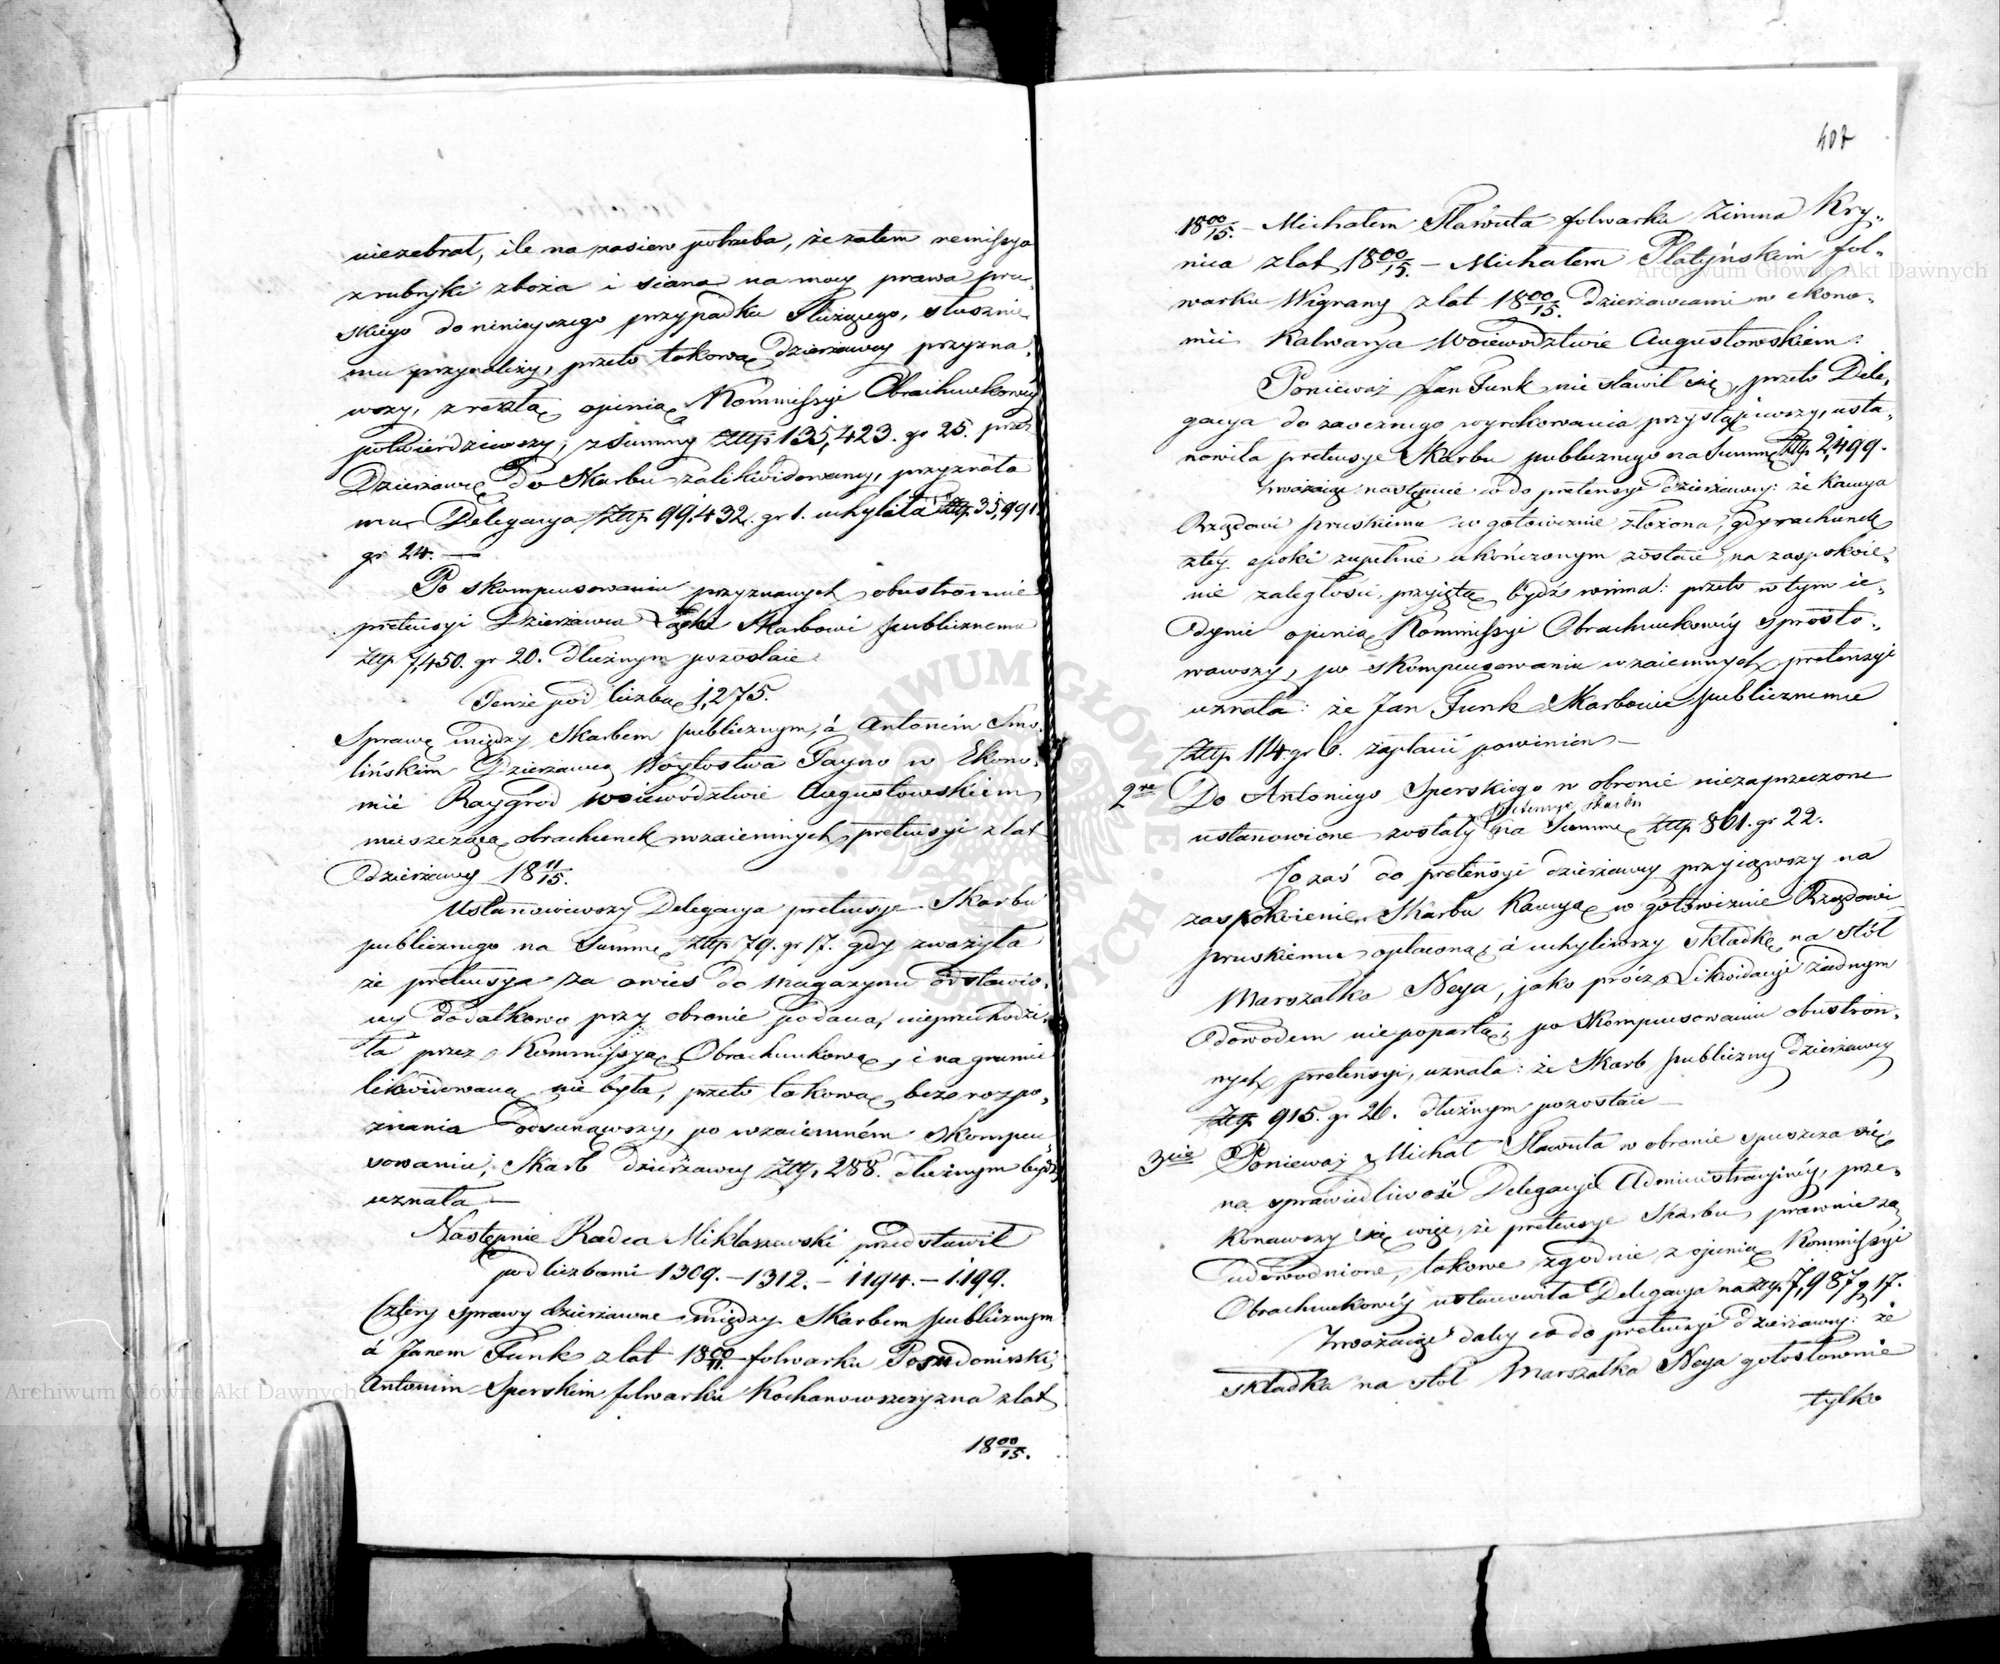 niezebrał, ile na zasiew potrzeba, że zatem remissya
z rubryki zboża i siana na mocy prawa pru„
skiego do ninieyszego przypadku służącego, słusznie
mu przynależy, przeto takową dzierżawcy przyzna„
wszy, z resztą opinią Kommissyi Obrachunkowéy
potwierdziwszy, z Summy Złtp 135,423. gr 25. przez
Dzierżawcę do Skarbu zalikwidowaney, przyznała
mu Delegacya Złtp 99,432. gr 1. uchyliła Złtp. 35,991.
gr 24. —
Po skompensowaniu przyznanych obustronnie
pretensyi Dzierżawca Skarbowi publicznemu
Złtp. 7,450. gr 20. dłużnym pozostaie
Tenże pod liczbą 1,275.
Sprawę między Skarbem publicznym, á Antonim Smo„
lińskim Dzierżawcą Wóytostwa Tayno w Ekono„
mii Raygrod Woiewództwie Augustowskiem
mieszczącą obrachunek wzaiemnych pretensyi z lat
dzierżawy 18 11/15.
Ustanowiwszy Delegacya pretensye Skarbu
publicznego na Summę Złtp 79. gr 17. gdy zważyła
że pretensya za owies do magazynu odstawio„
ny dodatkowo przy obronie podana, nieprzechodzi„
ła przez Kommissyą Obrachunkową, i na gruncie
likwidowaną nie była, przeto takową bez rozpo„
znania odsunąwszy, po wzaiemném skompen„
sowaniu, Skarb dzierżawcy Złtp. 288. dłużnym bydź
uznała —
Następnie Radca Miklaszewski przedstawił
pod liczbami 1309. — 1312. — 1194. — 1199.
Cztery sprawy dzierżawne między Skarbem publicznym
á Janem Funk z lat 18 00/11 folwarku Posudoniszki,
Antonim Sperskim folwarku Kochanowszczyzna z lat
18 00/15.
407
18 00/15. — Michałem Sławuta folwarku Zimna Kry„
nica z lat 18 00/15. — Michałem Płatyńskim fol„
warku Wigrany z lat 18 00/15. dzierżawcami w ekono„
mii Kalwarya Woiewodztwie Augustowskiem.
Ponieważ Jan Funk nie stawił się, przeto Dele„
gacya do zaocznego wyrokowania przystąpiwszy, usta„
nowiła pretensye Skarbu publicznego na Summę Złtp 2,499.
Zważaiąc następnie co do pretensyi dzierżawcy: że kaucya
Rządowi pruskiemu w gotowiznie złożona, gdy rachunek
z tey epoki zupełnie ukończonym zostaie, na zaspokoie„
nie zaległości, przyiętą bydź winna: przeto w tym ie„
dynie opinią Kommissyi Obrachunkowéy sprosto„
wawszy, po skompensowaniu wzaiemnych pretensyi
uznała: że Jan Funk Skarbowi publicznemu
Złtp. 114. gr 6. zapłacić powinien —
2re Do Antoniego Sperskiego w obronie niezaprzeczone
pretensye Skarbu
ustanowione zostały na Summę Złtp 861. gr 22.
Co zaś do pretensyi dzierżawcy przyiąwszy na
zaspokoienie Skarbu Kaucyą w gotowiznie Rządowi
pruskiemu opłaconą, á uchyliwszy składkę na stół
Marszałka Neya, jako prócz Likwidacyi żadnym
dowodem niepopartą, po skompensowaniu obustron„
nych pretensyi, uznała: że Skarb publiczny dzierżawcy
Złtp 915. gr 26. dłużnym pozostaie —
3cie Ponieważ Michał Sławuta w obronie spuszcza się
na sprawiedliwość Delegacyi Administracyinéy, prze„
konawszy się więc, że pretensye Skarbu prawnie są
udowodnione, takowe zgodnie z opinią Kommissyi
Obrachunkowéy ustanowiła Delegacya na Złtp 7,987 g 17.
Zważaiąc daley co do pretensyi dzierżawcy: że
składka na stół Marszałka Neya gołosłownie
tylko
Archiwum Główne Akt Dawnych
Archiwum Główne Akt Dawnych
ARCHIWUM GŁÓWNE AKT DAWNYCH